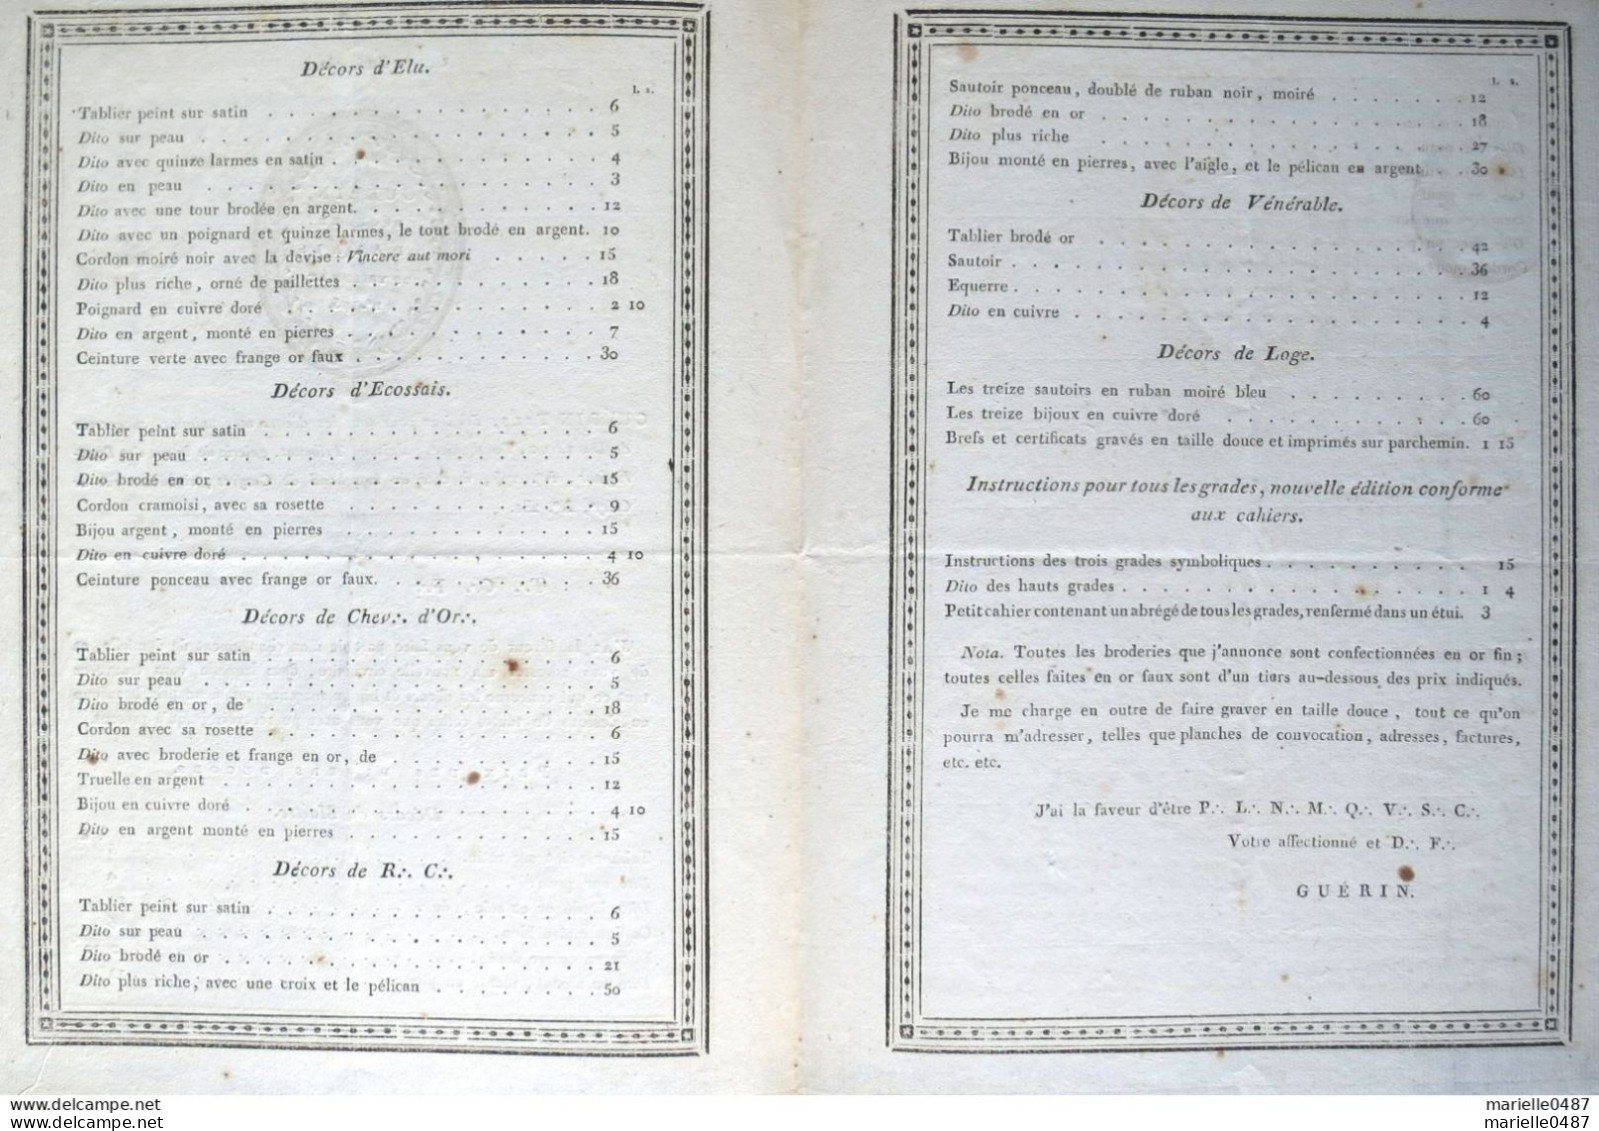 Décors d'Elu.
l. s.
Tablier peint sur satin . . . . . . . . . . . . . . . . 6
Dito sur peau . . . . . . . . . . . . . . . . . . . 5
Dito avec quinze larmes en satin . . . . . . . . . . . . . 4
Dito en peau . . . . . . . . . . . . . . . . . . . 3
Dito avec une tour brodée en argent. . . . . . . . . . . . 12
Dito avec un poignard et quinze larmes, le tout brodé en argent. 10
Cordon moiré noir avec la devise : Vincere aut mori . . . . . 15
Dito plus riche, orné de paillettes . . . . . . . . . . . . 18
Poignard en cuivre doré . . . . . . . . . . . . . . . 2 10
Dito en argent, monté en pierres . . . . . . . . . . . . 7
Ceinture verte avec frange or faux . . . . . . . . . . . . 30
Décors d'Ecossais.
Tablier peint sur satin . . . . . . . . . . . . . . . . 6
Dito sur peau . . . . . . . . . . . . . . . . . . . 5
Dito brodé en or . . . . . . . . . . . . . . . . . . 15
Cordon cramoisi, avec sa rosette . . . . . . . . . . . . 9
Bijou argent, monté en pierres . . . . . . . . . . . . 15
Dito en cuivre doré . . . . . . . . . . . . . . . . . 4 10
Ceinture ponceau avec frange or faux. . . . . . . . . . . 36
Décors de Chev∴ d'Or∴
Tablier peint sur satin . . . . . . . . . . . . . . . . 6
Dito sur peau . . . . . . . . . . . . . . . . . . . 5
Dito brodé en or, de . . . . . . . . . . . . . . . . 18
Cordon avec sa rosette . . . . . . . . . . . . . . . . 6
Dito avec broderie et frange en or, de . . . . . . . . . . 15
Truelle en argent . . . . . . . . . . . . . . . . . . 12
Bijou en cuivre doré . . . . . . . . . . . . . . . . . 4 10
Dito en argent monté en pierres . . . . . . . . . . . . 15
Décors de R∴ C∴
Tablier peint sur satin . . . . . . . . . . . . . . . . 6
Dito sur peau . . . . . . . . . . . . . . . . . . . 5
Dito brodé en or . . . . . . . . . . . . . . . . . . 21
Dito plus riche, avec une croix et le pélican . . . . . . . . 50
l. s.
Sautoir ponceau, doublé de ruban noir, moiré . . . . . . . 12
Dito brodé en or . . . . . . . . . . . . . . . . . . 18
Dito plus riche . . . . . . . . . . . . . . . . . . 27
Bijou monté en pierres, avec l'aigle, et le pélican en argent. . . 30
Décors de Vénérable.
Tablier brodé or . . . . . . . . . . . . . . . . . . 42
Sautoir . . . . . . . . . . . . . . . . . . . . . 36
Equerre . . . . . . . . . . . . . . . . . . . . . 12
Dito en cuivre . . . . . . . . . . . . . . . . . . . 4
Décors de Loge.
Les treize sautoirs en ruban moiré bleu . . . . . . . . . 60
Les treize bijoux en cuivre doré . . . . . . . . . . . . 60
Brefs et certificats gravés en taille douce et imprimés sur parchemin. 1 15
Instructions pour tous les grades, nouvelle édition conforme
aux cahiers.
Instructions des trois grades symboliques . . . . . . . . . 15
Dito des hauts grades . . . . . . . . . . . . . . . . 1 4
Petit cahier contenant un abrégé de tous les grades, renfermé dans un étui. 3
Nota. Toutes les broderies que j'annonce sont confectionnées en or fin ;
toutes celles faites en or faux sont d'un tiers au-dessous des prix indiqués.
Je me charge en outre de faire graver en taille douce, tout ce qu'on
pourra m'adresser, telles que planches de convocation, adresses, factures,
etc. etc.
J'ai la faveur d'être P∴ L∴ N∴ M∴ Q∴ V∴ S∴ C∴
Votre affectionné et D∴ F∴
GUÉRIN.
marielle0487
marielle0487
marielle0487
marielle0487